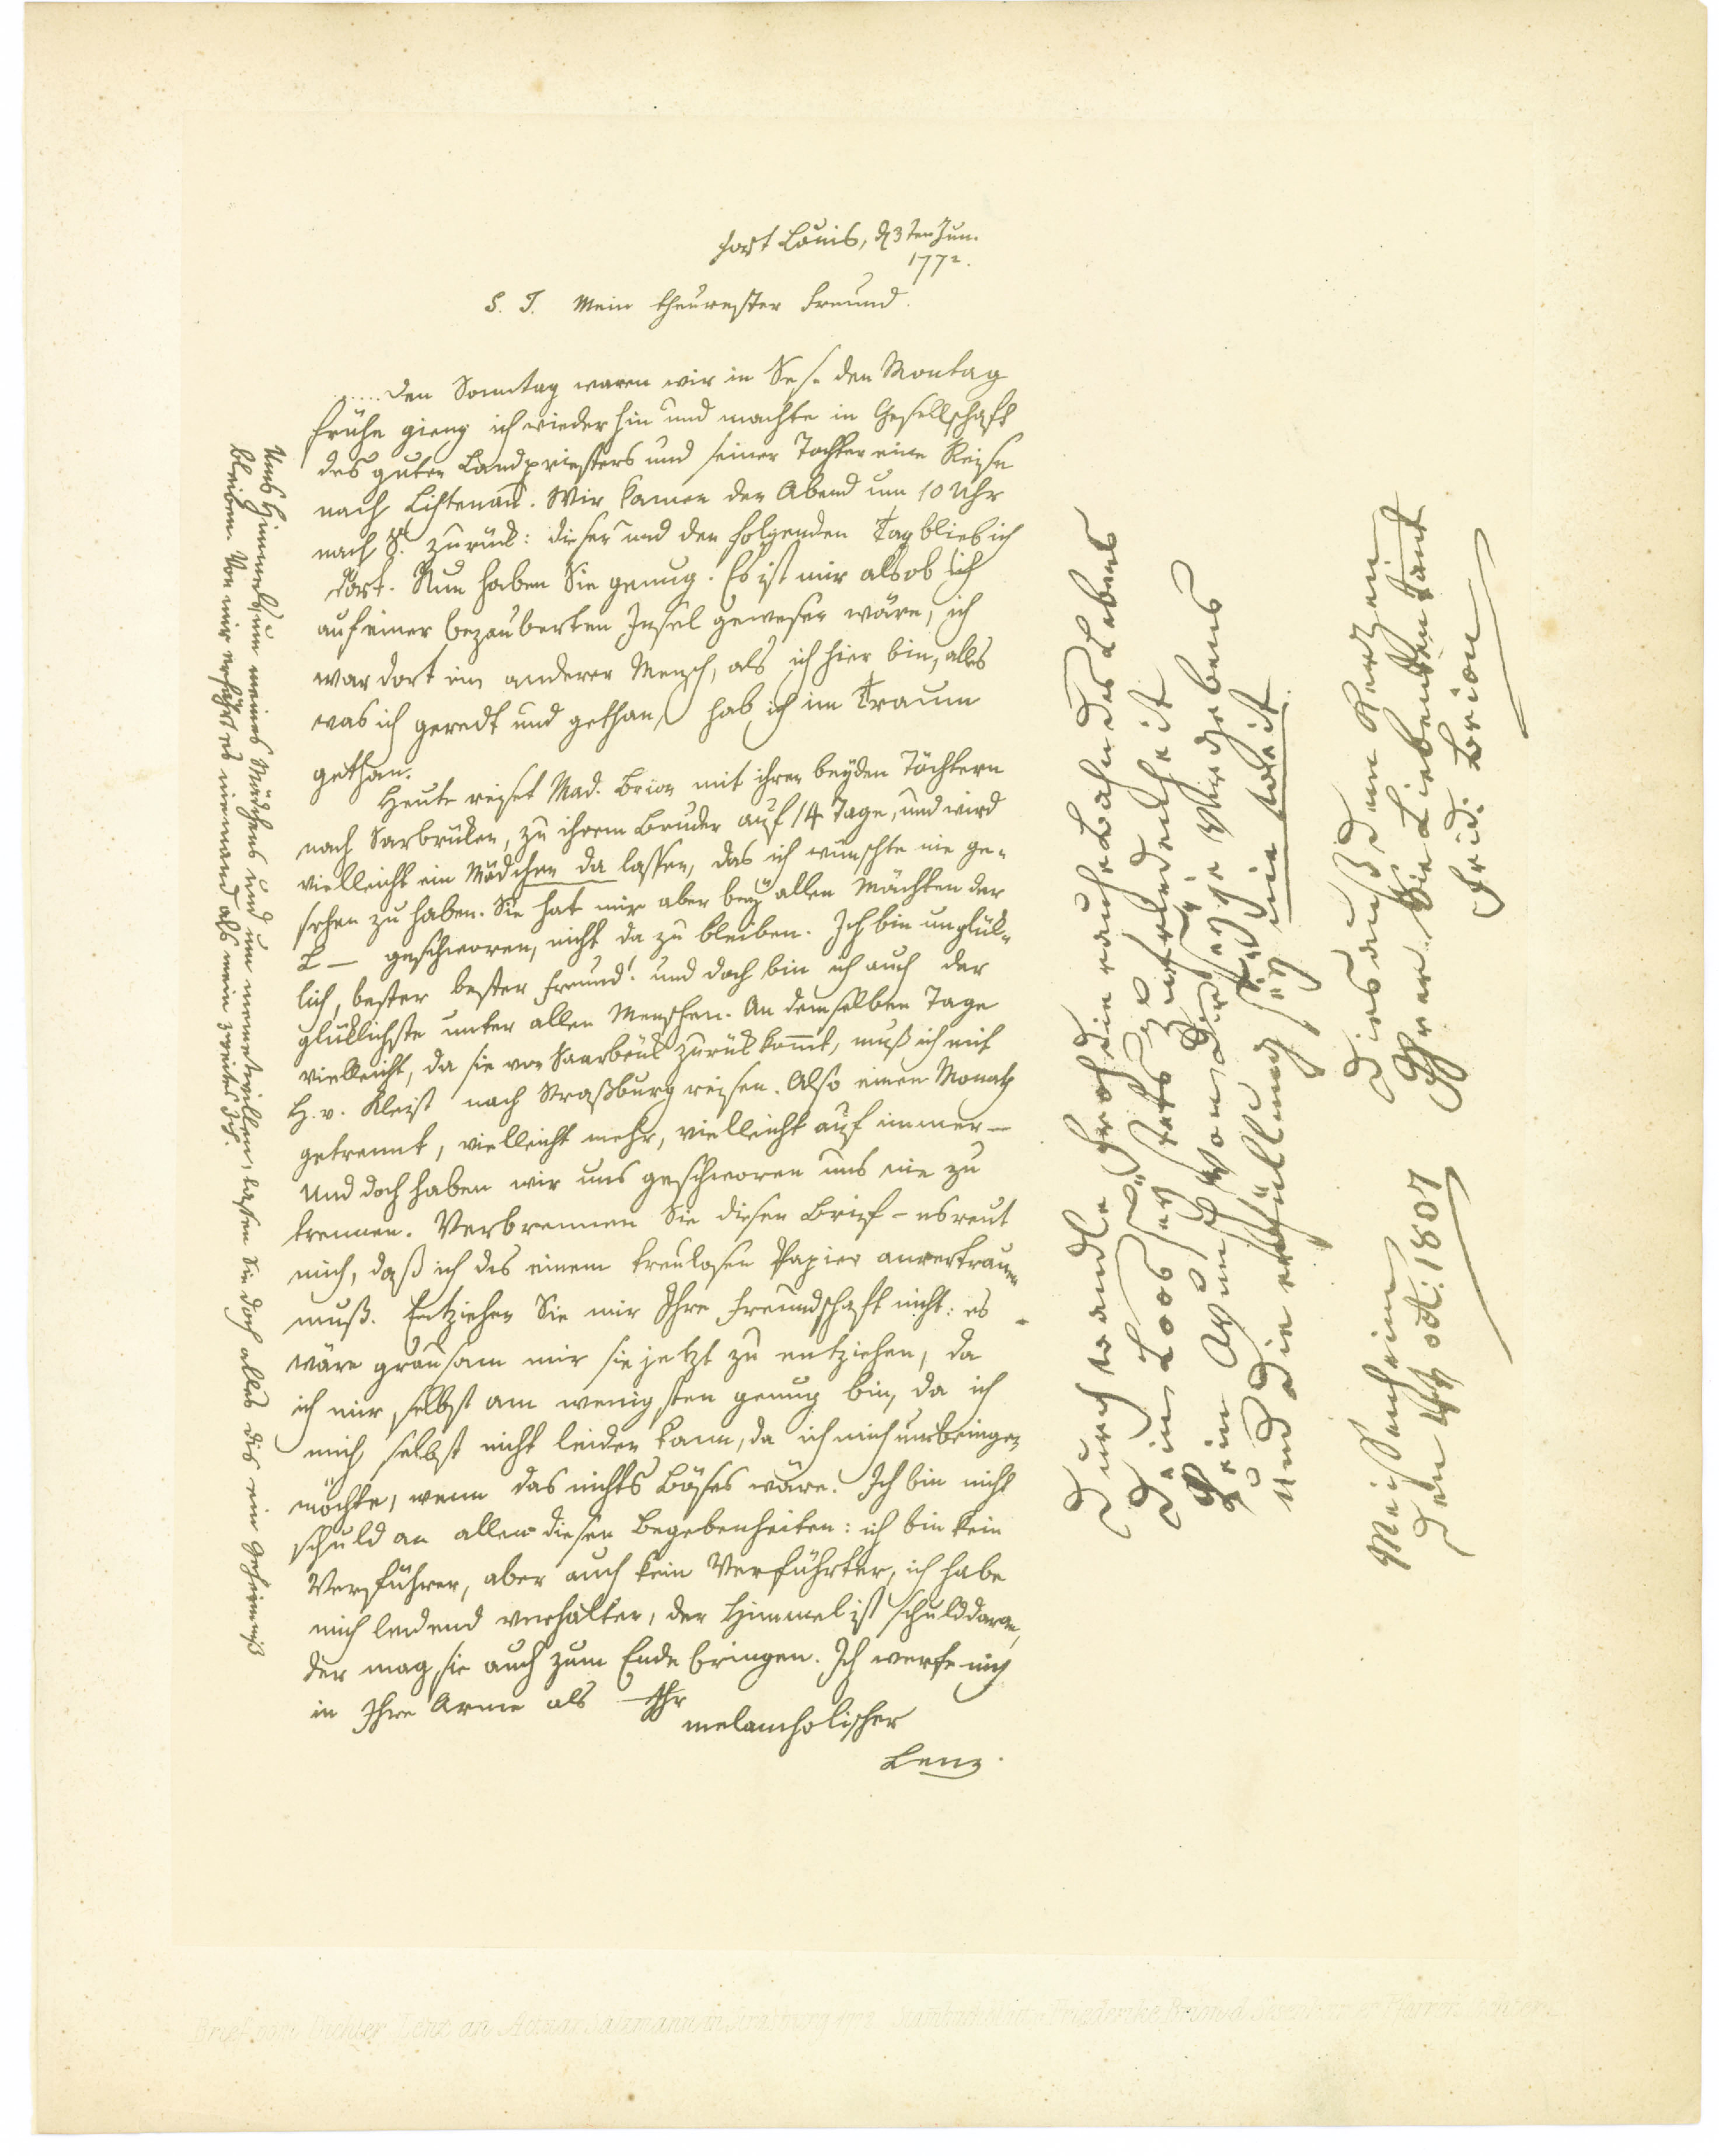 Fort Louis, d 3ten Jun.
1772.
S. T. Mein theurester Freund.
..... den Sonntag waren wir in Ses. den Montag
frühe gieng ich wieder hin und machte in Gesellschaft
des guten Landpriesters und seiner Tochter eine Reise
nach Lichtenau. Wir kamen den Abend um 10 Uhr
nach S. zurück: dieser und den folgenden Tag blieb ich
dort. Nun haben Sie genug. Es ist mir als ob ich
auf einer bezauberten Insel gewesen wäre, ich
war dort ein anderer Mensch, als ich hier bin, alles
was ich geredt und gethan, hab ich im Traum
gethan.
Heute reiset Mad. Brion mit ihren beyden Töchtern
nach Sarbrüken, zu ihrem Bruder auf 14 Tage, und wird
vielleicht ein Mädchen da lassen, das ich wünschte nie ge-
sehen zu haben. Sie hat mir aber bey allen Mächten der
L — geschworen, nicht da zu bleiben. Ich bin unglük-
lich, bester bester Freund! und doch bin ich auch der
glüklichste unter allen Menschen. An demselben Tage
vielleicht, da sie von Saarbrük zurük kommt, muß ich mit
H. v. Kleist nach Straßburg reisen. Also einen Monath
getrennt, vielleicht mehr, vielleicht auf immer —
Und doch haben wir uns geschworen uns nie zu
trennen. Verbrennen Sie diesen Brief – es reut
mich, daß ich dis einem treulosen Papier anvertrauen
muß. Entziehen Sie mir Ihre Freundschaft nicht: es
wäre grausam mir sie jetzt zu entziehen, da
ich mir selbst am wenigsten genug bin, da ich
mich selbst nicht leiden kann, da ich mich umbringen
möchte, wenn das nichts Böses wäre. Ich bin nicht
schuld an allen diesen Begebenheiten: ich bin kein
Verführer, aber auch kein Verführter, ich habe
mich leidend verhalten, der Himmel ist schuld daran,
der mag sie auch zum Ende bringen. Ich werfe mich
in Ihre Arme als Ihr
melancholischer
Lenz.
Ums Himmels um meines Mädchens und um meinetwillen, lassen Sie doch alles dis ein Geheimniß
bleiben. Von mir erfährt es niemand als mein zweites Ich.
Durch wandle froh die rauhe Bahn des Lebens
Dein Loos sey stets Zufriedenheit
Kein Wunsch von Dir sey je Vergebens
Und die erfüllung sey nie weit
Meisenheim
den 4t oct. 1807
Dies aus dem Herzen
Ihrer Sie Liebenden Tant
Frid. Brion
Brief vom Dichter Lenz an Actuar Salzmann in Strassburg 1772. Stammbuchblatt v. Friederike Brion d. Sesenheimer Pfarrers Tochter